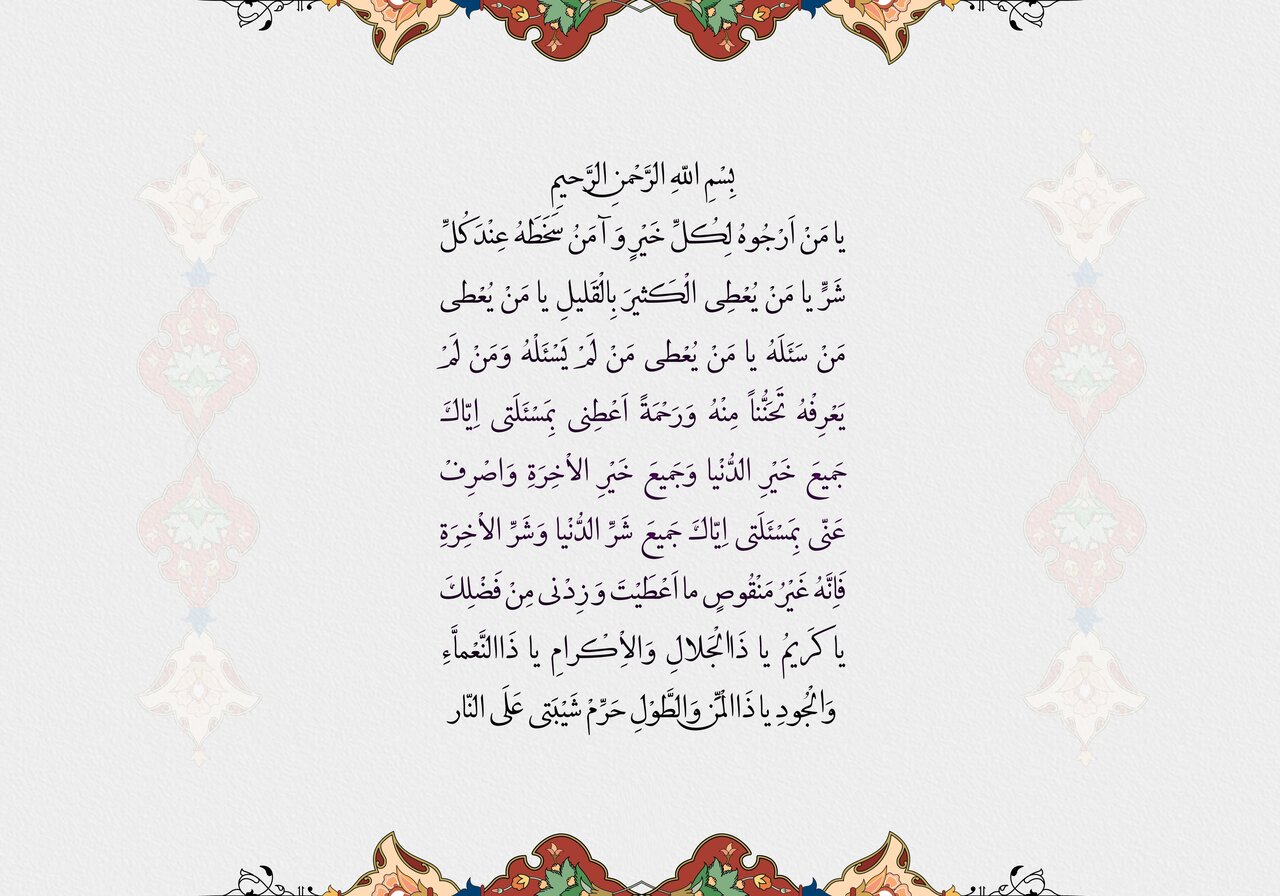 بِسْمِ اللّهِ الرَّحْمنِ الرَّحیمِ
یا مَنْ اَرْجُوهُ لِکُلِّ خَیْرٍ وَ آمَنُ سَخَطَهُ عِنْدَ کُلِّ
شَرٍّ یا مَنْ یُعْطِی الْکَثیرَ بِالْقَلیلِ یا مَنْ یُعْطی
مَنْ سَئَلَهُ یا مَنْ یُعْطی مَنْ لَمْ یَسْئَلْهُ وَمَنْ لَمْ
یَعْرِفْهُ تَحَنُّناً مِنْهُ وَرَحْمَةً اَعْطِنی بِمَسْئَلَتی اِیّاکَ
جَمیعَ خَیْرِ الدُّنْیا وَجَمیعَ خَیْرِ الاْخِرَةِ وَاصْرِفْ
عَنّی بِمَسْئَلَتی اِیّاکَ جَمیعَ شَرِّ الدُّنْیا وَشَرِّ الاْخِرَةِ
فَاِنَّهُ غَیْرُ مَنْقُوصٍ ما اَعْطَیْتَ وَ زِدْنی مِنْ فَضْلِکَ
یا کَریمُ یا ذَاالْجَلالِ وَالاِْکْرامِ یا ذَاالنَّعْماَّءِ
وَالْجُودِ یا ذَاالْمَنِّ وَالطَّوْلِ حَرِّمْ شَیْبَتی عَلَی النّار